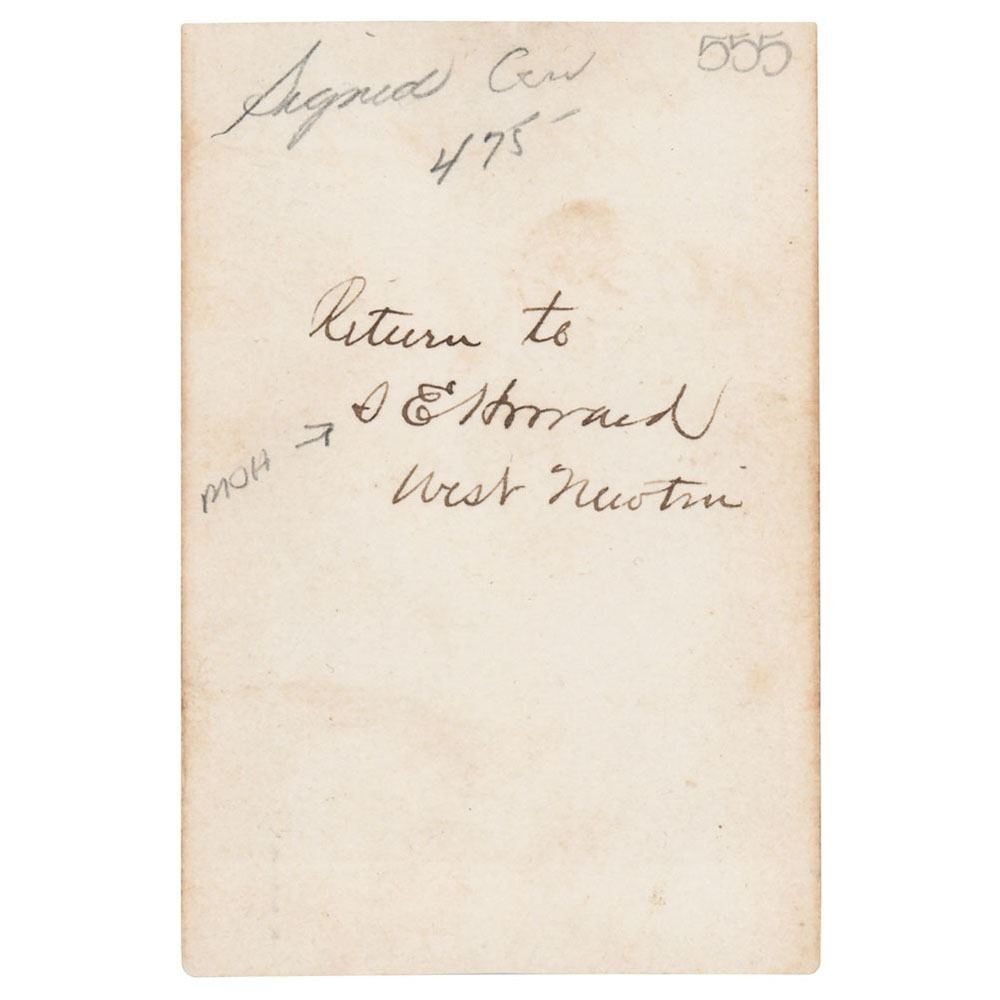 555
Signed
475-
Return to
S E Howard
West Newton
MOH →